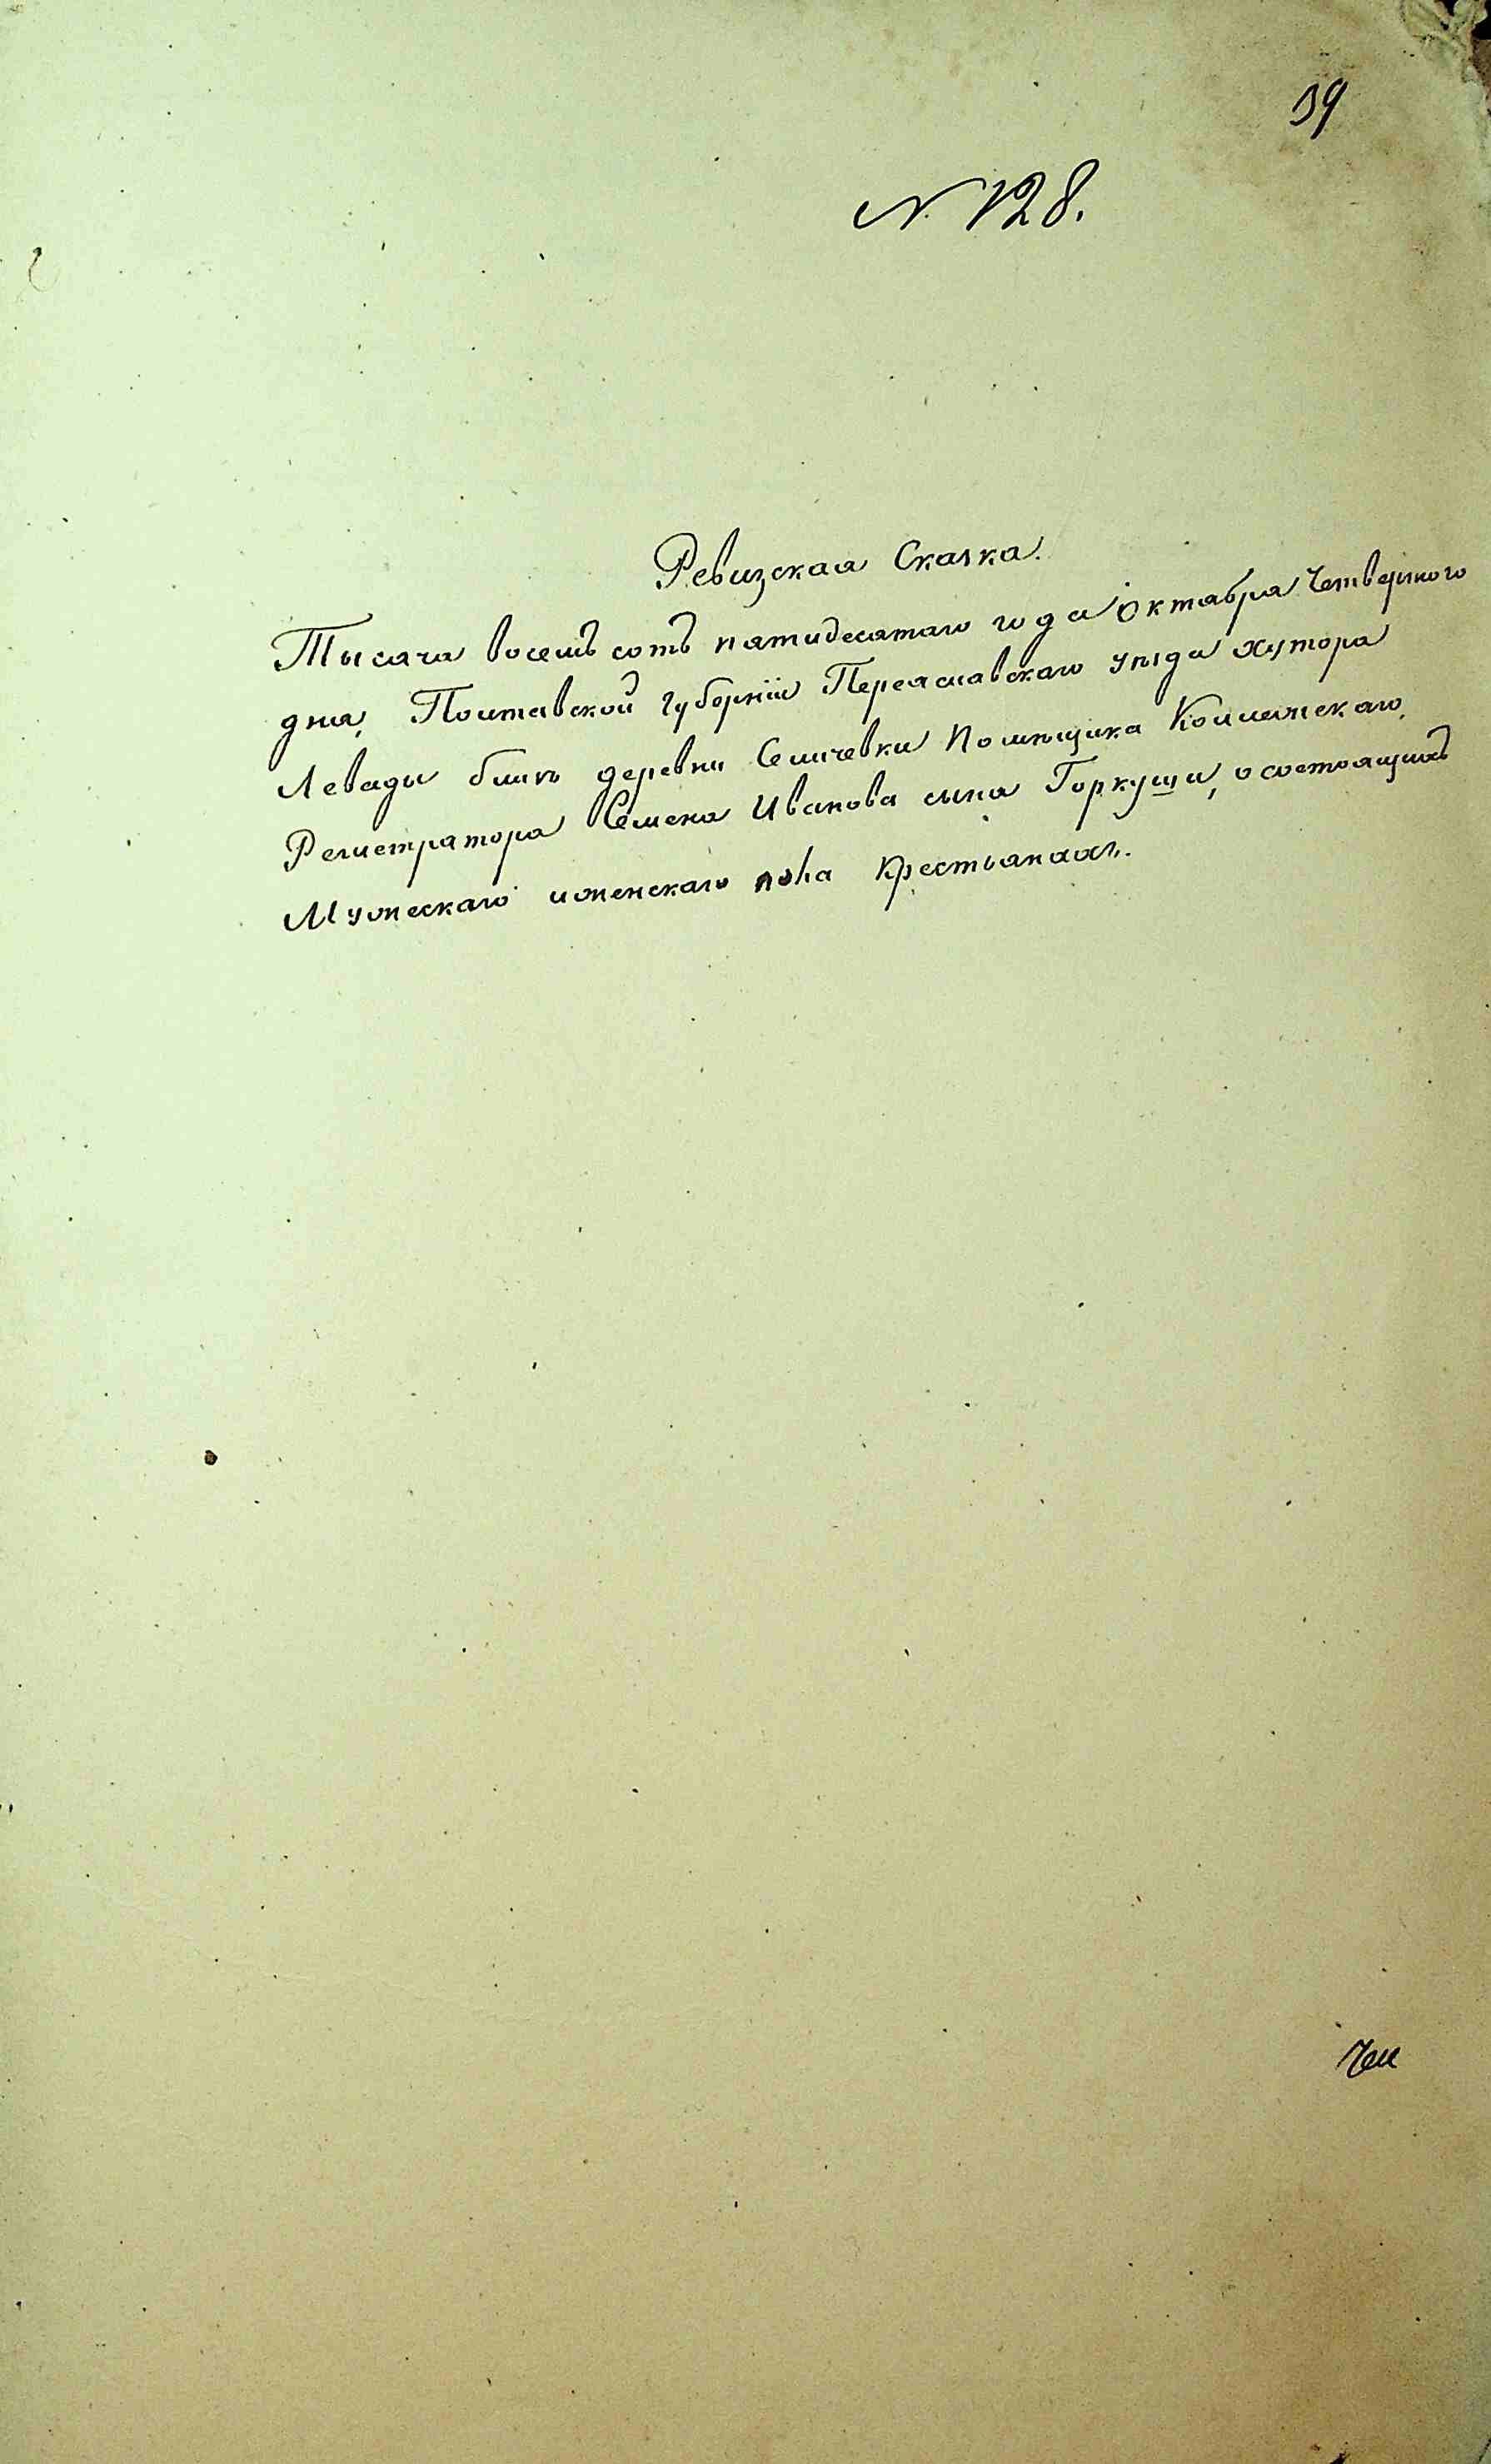 39
N 128.
Ревизская Сказка.
Тысяча восемь сотъ пятидесятаго года Октября Четвертого
дня, Полтавской губерніи Переяславскаго уѣзда хутора
Левады близъ деревни Семичевки Помѣщика Коллежскаго
Регистратора Семена Иванова сына Горкуши, о состоящихъ
Мужескаго и женскаго пола Крестьянахъ.